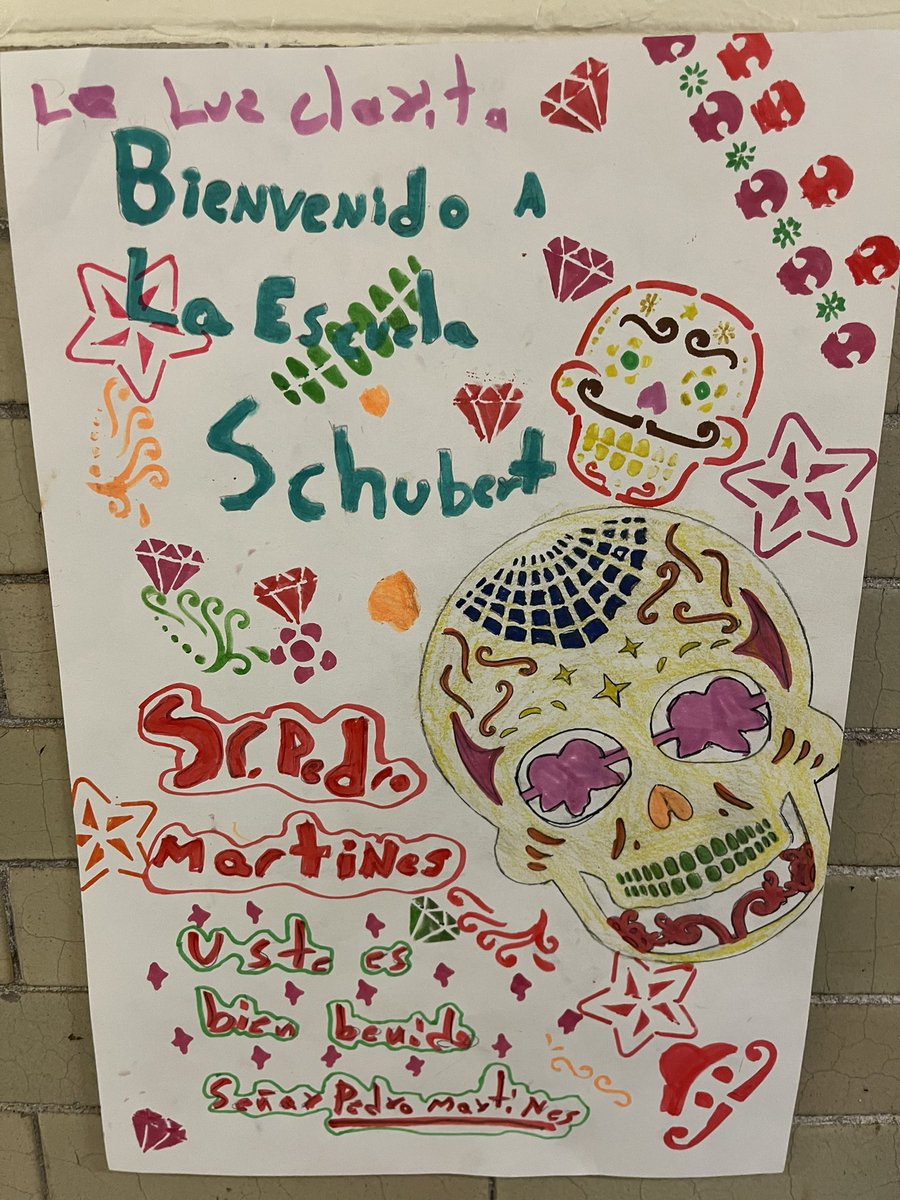 La Luz clarita
Bienvenido A
La Escuela
Schubert
Sr. Pedro
Martines
Uste es
bien benido
Señar Pedro martines